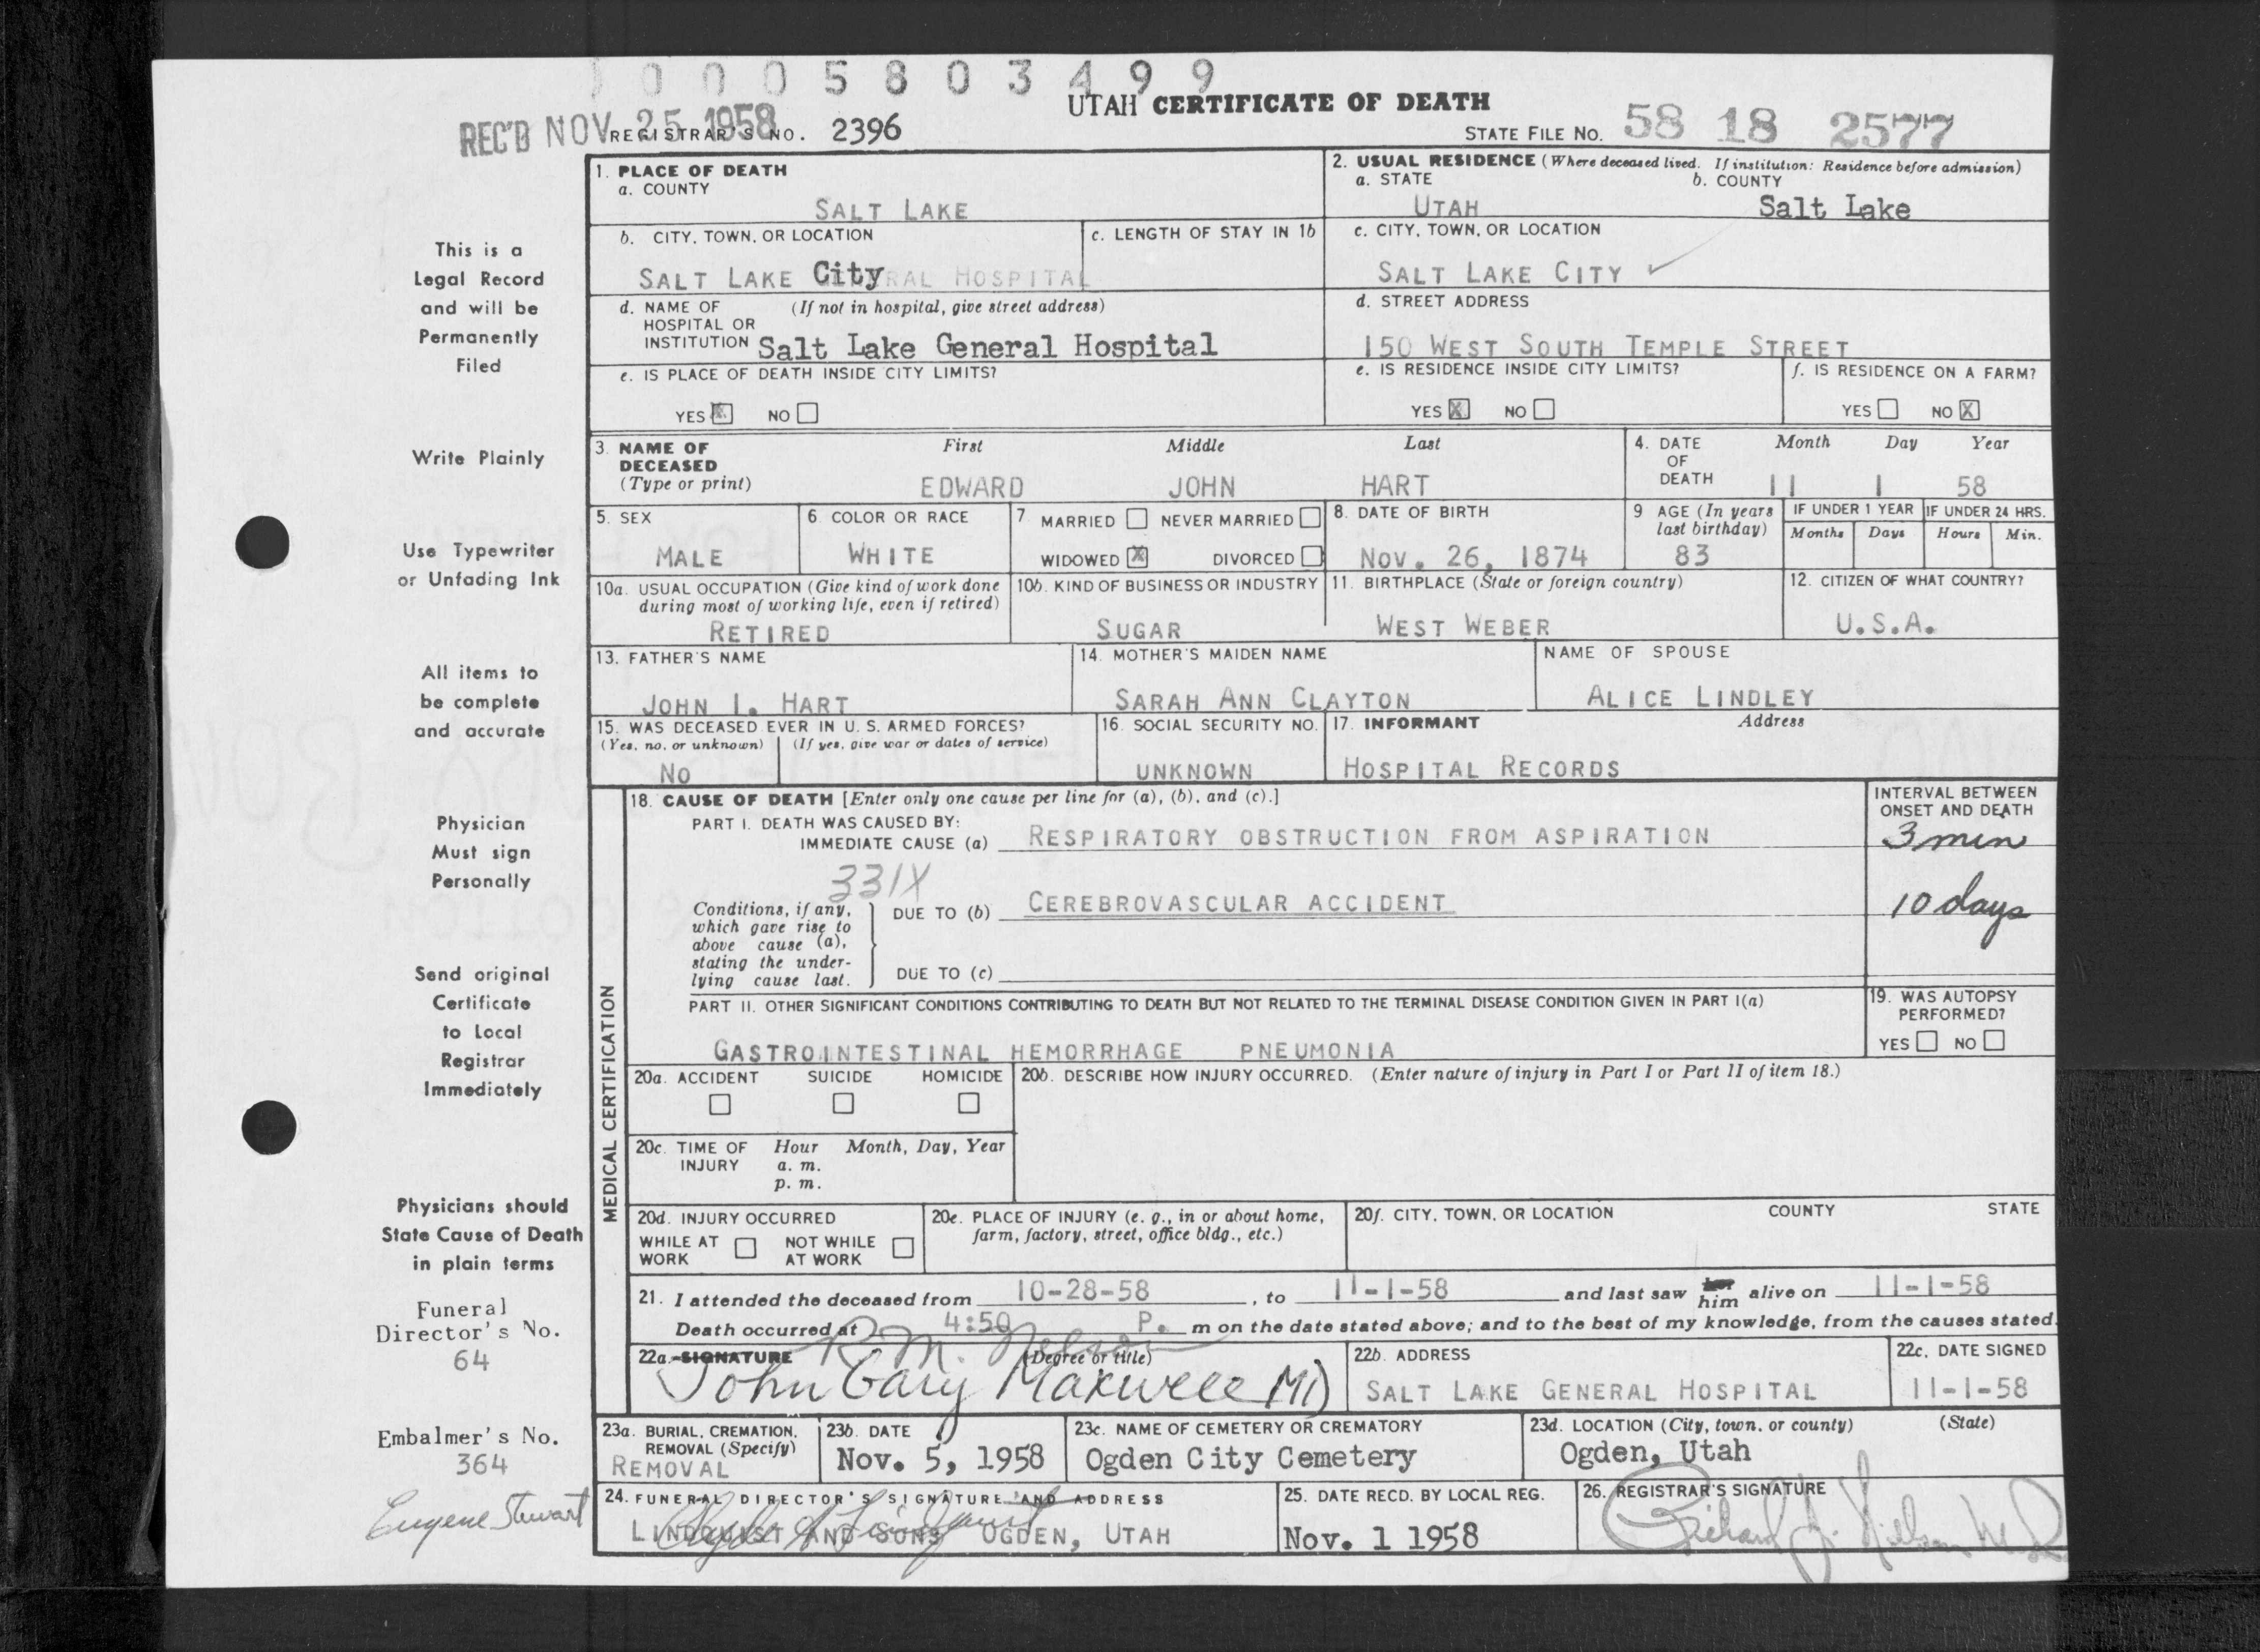 0 0 0 5 8 0 3 4 9 9
UTAH CERTIFICATE OF DEATH
REC'D NOV 25 1958 REGISTRAR'S NO. 2396
STATE FILE NO. 58 18 2577
This is a
Legal Record
and will be
Permanently
Filed
Write Plainly
Use Typewriter
or Unfading Ink
All items to
be complete
and accurate
Physician
Must sign
Personally
Send original
Certificate
to Local
Registrar
Immediately
Physicians should
State Cause of Death
in plain terms
Funeral
Director's No.
64
Embalmer's No.
364
Eugene Stewart
1. PLACE OF DEATH
a. COUNTY
SALT LAKE
2. USUAL RESIDENCE (Where deceased lived. If institution: Residence before admission)
a. STATE b. COUNTY
UTAH Salt Lake
b. CITY, TOWN, OR LOCATION c. LENGTH OF STAY IN 1b
SALT LAKE City RAL HOSPITAL
c. CITY, TOWN, OR LOCATION
SALT LAKE CITY ✓
d. NAME OF (If not in hospital, give street address)
HOSPITAL OR
INSTITUTION Salt Lake General Hospital
d. STREET ADDRESS
150 WEST SOUTH TEMPLE STREET
e. IS PLACE OF DEATH INSIDE CITY LIMITS?
YES X NO
e. IS RESIDENCE INSIDE CITY LIMITS?
YES X NO
f. IS RESIDENCE ON A FARM?
YES NO X
3. NAME OF First Middle Last
DECEASED
(Type or print) EDWARD JOHN HART
4. DATE Month Day Year
OF
DEATH 11 1 58
5. SEX
MALE
6. COLOR OR RACE
WHITE
7. MARRIED NEVER MARRIED
WIDOWED X DIVORCED
8. DATE OF BIRTH
Nov. 26, 1874
9 AGE (In years
last birthday)
83
IF UNDER 1 YEAR IF UNDER 24 HRS.
Months Days Hours Min.
10a. USUAL OCCUPATION (Give kind of work done
during most of working life, even if retired)
RETIRED
10b. KIND OF BUSINESS OR INDUSTRY
SUGAR
11. BIRTHPLACE (State or foreign country)
WEST WEBER
12. CITIZEN OF WHAT COUNTRY?
U.S.A.
13. FATHER'S NAME
JOHN I. HART
14. MOTHER'S MAIDEN NAME
SARAH ANN CLAYTON
NAME OF SPOUSE
ALICE LINDLEY
15. WAS DECEASED EVER IN U. S. ARMED FORCES?
(Yes, no, or unknown) (If yes, give war or dates of service)
NO
16. SOCIAL SECURITY NO.
UNKNOWN
17. INFORMANT Address
HOSPITAL RECORDS
MEDICAL CERTIFICATION
18. CAUSE OF DEATH [Enter only one cause per line for (a), (b), and (c).]
PART I. DEATH WAS CAUSED BY:
IMMEDIATE CAUSE (a) RESPIRATORY OBSTRUCTION FROM ASPIRATION
INTERVAL BETWEEN
ONSET AND DEATH
3 min
331X
Conditions, if any,
which gave rise to
above cause (a),
stating the under-
lying cause last.
DUE TO (b) CEREBROVASCULAR ACCIDENT
10 days
DUE TO (c)
PART II. OTHER SIGNIFICANT CONDITIONS CONTRIBUTING TO DEATH BUT NOT RELATED TO THE TERMINAL DISEASE CONDITION GIVEN IN PART I(a)
GASTROINTESTINAL HEMORRHAGE PNEUMONIA
19. WAS AUTOPSY
PERFORMED?
YES NO
20a. ACCIDENT SUICIDE HOMICIDE
20b. DESCRIBE HOW INJURY OCCURRED. (Enter nature of injury in Part I or Part II of item 18.)
20c. TIME OF Hour Month, Day, Year
INJURY a. m.
p. m.
20d. INJURY OCCURRED
WHILE AT NOT WHILE
WORK AT WORK
20e. PLACE OF INJURY (e. g., in or about home,
farm, factory, street, office bldg., etc.)
20f. CITY, TOWN, OR LOCATION COUNTY STATE
21. I attended the deceased from 10-28-58, to 11-1-58 and last saw her him alive on 11-1-58
Death occurred at 4:50 P. m on the date stated above; and to the best of my knowledge, from the causes stated.
22a. SIGNATURE (Degree or title)
R. M. Nelson
John Gary Maxwell MD
22b. ADDRESS
SALT LAKE GENERAL HOSPITAL
22c. DATE SIGNED
11-1-58
23a. BURIAL, CREMATION,
REMOVAL (Specify)
REMOVAL
23b. DATE
Nov. 5, 1958
23c. NAME OF CEMETERY OR CREMATORY
Ogden City Cemetery
23d. LOCATION (City, town, or county) (State)
Ogden, Utah
24. FUNERAL DIRECTOR'S SIGNATURE AND ADDRESS
LINDQUIST AND SONS OGDEN, UTAH
25. DATE RECD. BY LOCAL REG.
Nov. 1 1958
26. REGISTRAR'S SIGNATURE
Richard J. Nielsen